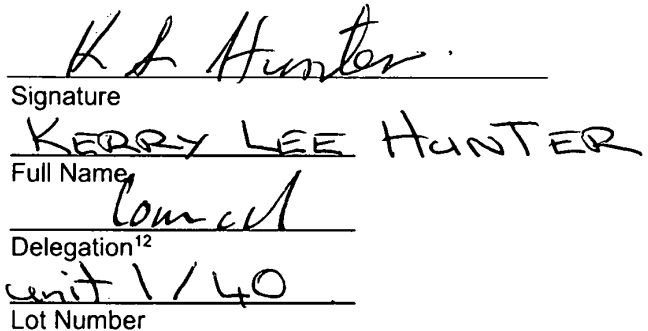 K L Hunter.
Signature
KERRY LEE HUNTER
Full Name
Delegation¹²
unit 1/40
Lot Number